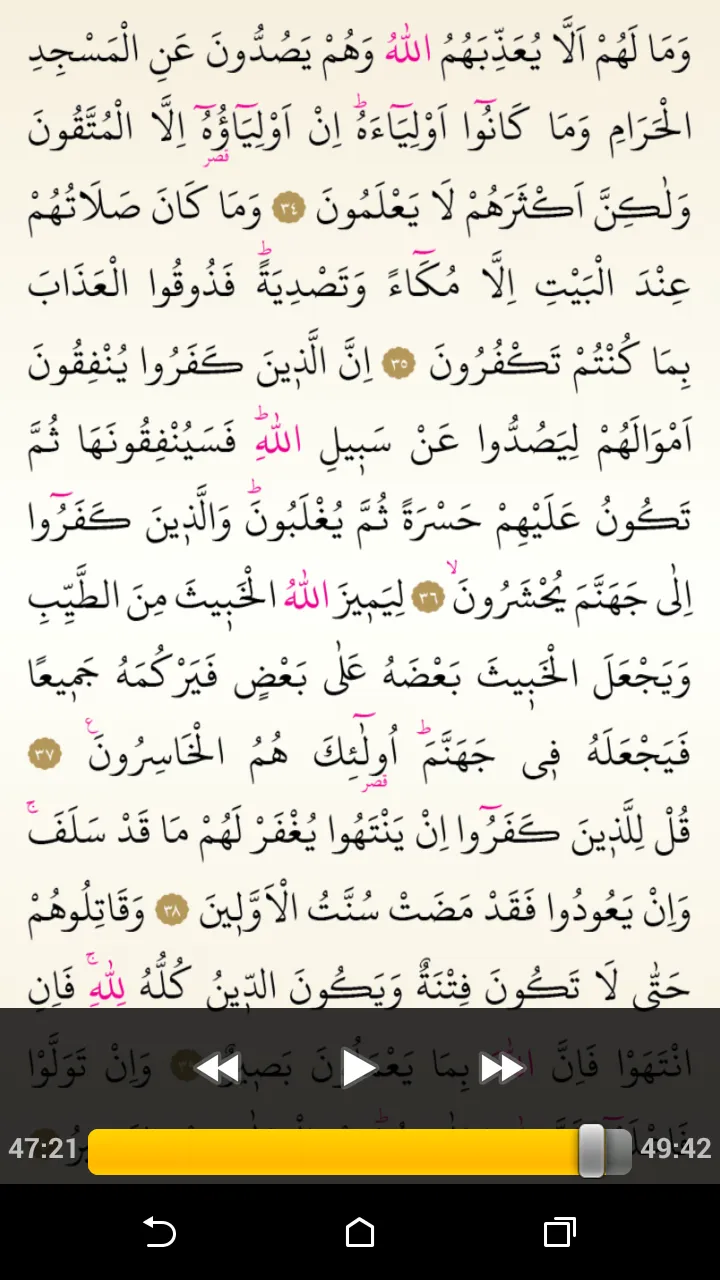 وَمَا لَهُمْ اَلَّا يُعَذِّبَهُمُ اللّٰهُ وَهُمْ يَصُدُّونَ عَنِ الْمَسْجِدِ
الْحَرَامِ وَمَا كَانُٓوا اَوْلِيَٓاءَهُۜ اِنْ اَوْلِيَٓاؤُ۬هُٓ اِلَّا الْمُتَّقُونَ
قصر
وَلٰكِنَّ اَكْثَرَهُمْ لَا يَعْلَمُونَ ٣٤ وَمَا كَانَ صَلَاتُهُمْ
عِنْدَ الْبَيْتِ اِلَّا مُكَٓاءً وَتَصْدِيَةًۜ فَذُوقُوا الْعَذَابَ
بِمَا كُنْتُمْ تَكْفُرُونَ ٣٥ اِنَّ الَّذ۪ينَ كَفَرُوا يُنْفِقُونَ
اَمْوَالَهُمْ لِيَصُدُّوا عَنْ سَب۪يلِ اللّٰهِۜ فَسَيُنْفِقُونَهَا ثُمَّ
تَكُونُ عَلَيْهِمْ حَسْرَةً ثُمَّ يُغْلَبُونَۜ وَالَّذ۪ينَ كَفَرُٓوا
اِلٰى جَهَنَّمَ يُحْشَرُونَۙ ٣٦ لِيَم۪يزَ اللّٰهُ الْخَب۪يثَ مِنَ الطَّيِّبِ
وَيَجْعَلَ الْخَب۪يثَ بَعْضَهُ عَلٰى بَعْضٍ فَيَرْكُمَهُ جَم۪يعًا
فَيَجْعَلَهُ ف۪ي جَهَنَّمَۜ اُو۬لٰٓئِكَ هُمُ الْخَاسِرُونَ۟ ٣٧
قصر
قُلْ لِلَّذ۪ينَ كَفَرُٓوا اِنْ يَنْتَهُوا يُغْفَرْ لَهُمْ مَا قَدْ سَلَفَۚ
وَاِنْ يَعُودُوا فَقَدْ مَضَتْ سُنَّتُ الْاَوَّل۪ينَ ٣٨ وَقَاتِلُوهُمْ
حَتّٰى لَا تَكُونَ فِتْنَةٌ وَيَكُونَ الدّ۪ينُ كُلُّهُ لِلّٰهِۚ فَاِنِ
انْتَهَوْا فَاِنَّ اللّٰهَ بِمَا يَعْمَلُونَ بَص۪يرٌ وَاِنْ تَوَلَّوْا
47:21 49:42